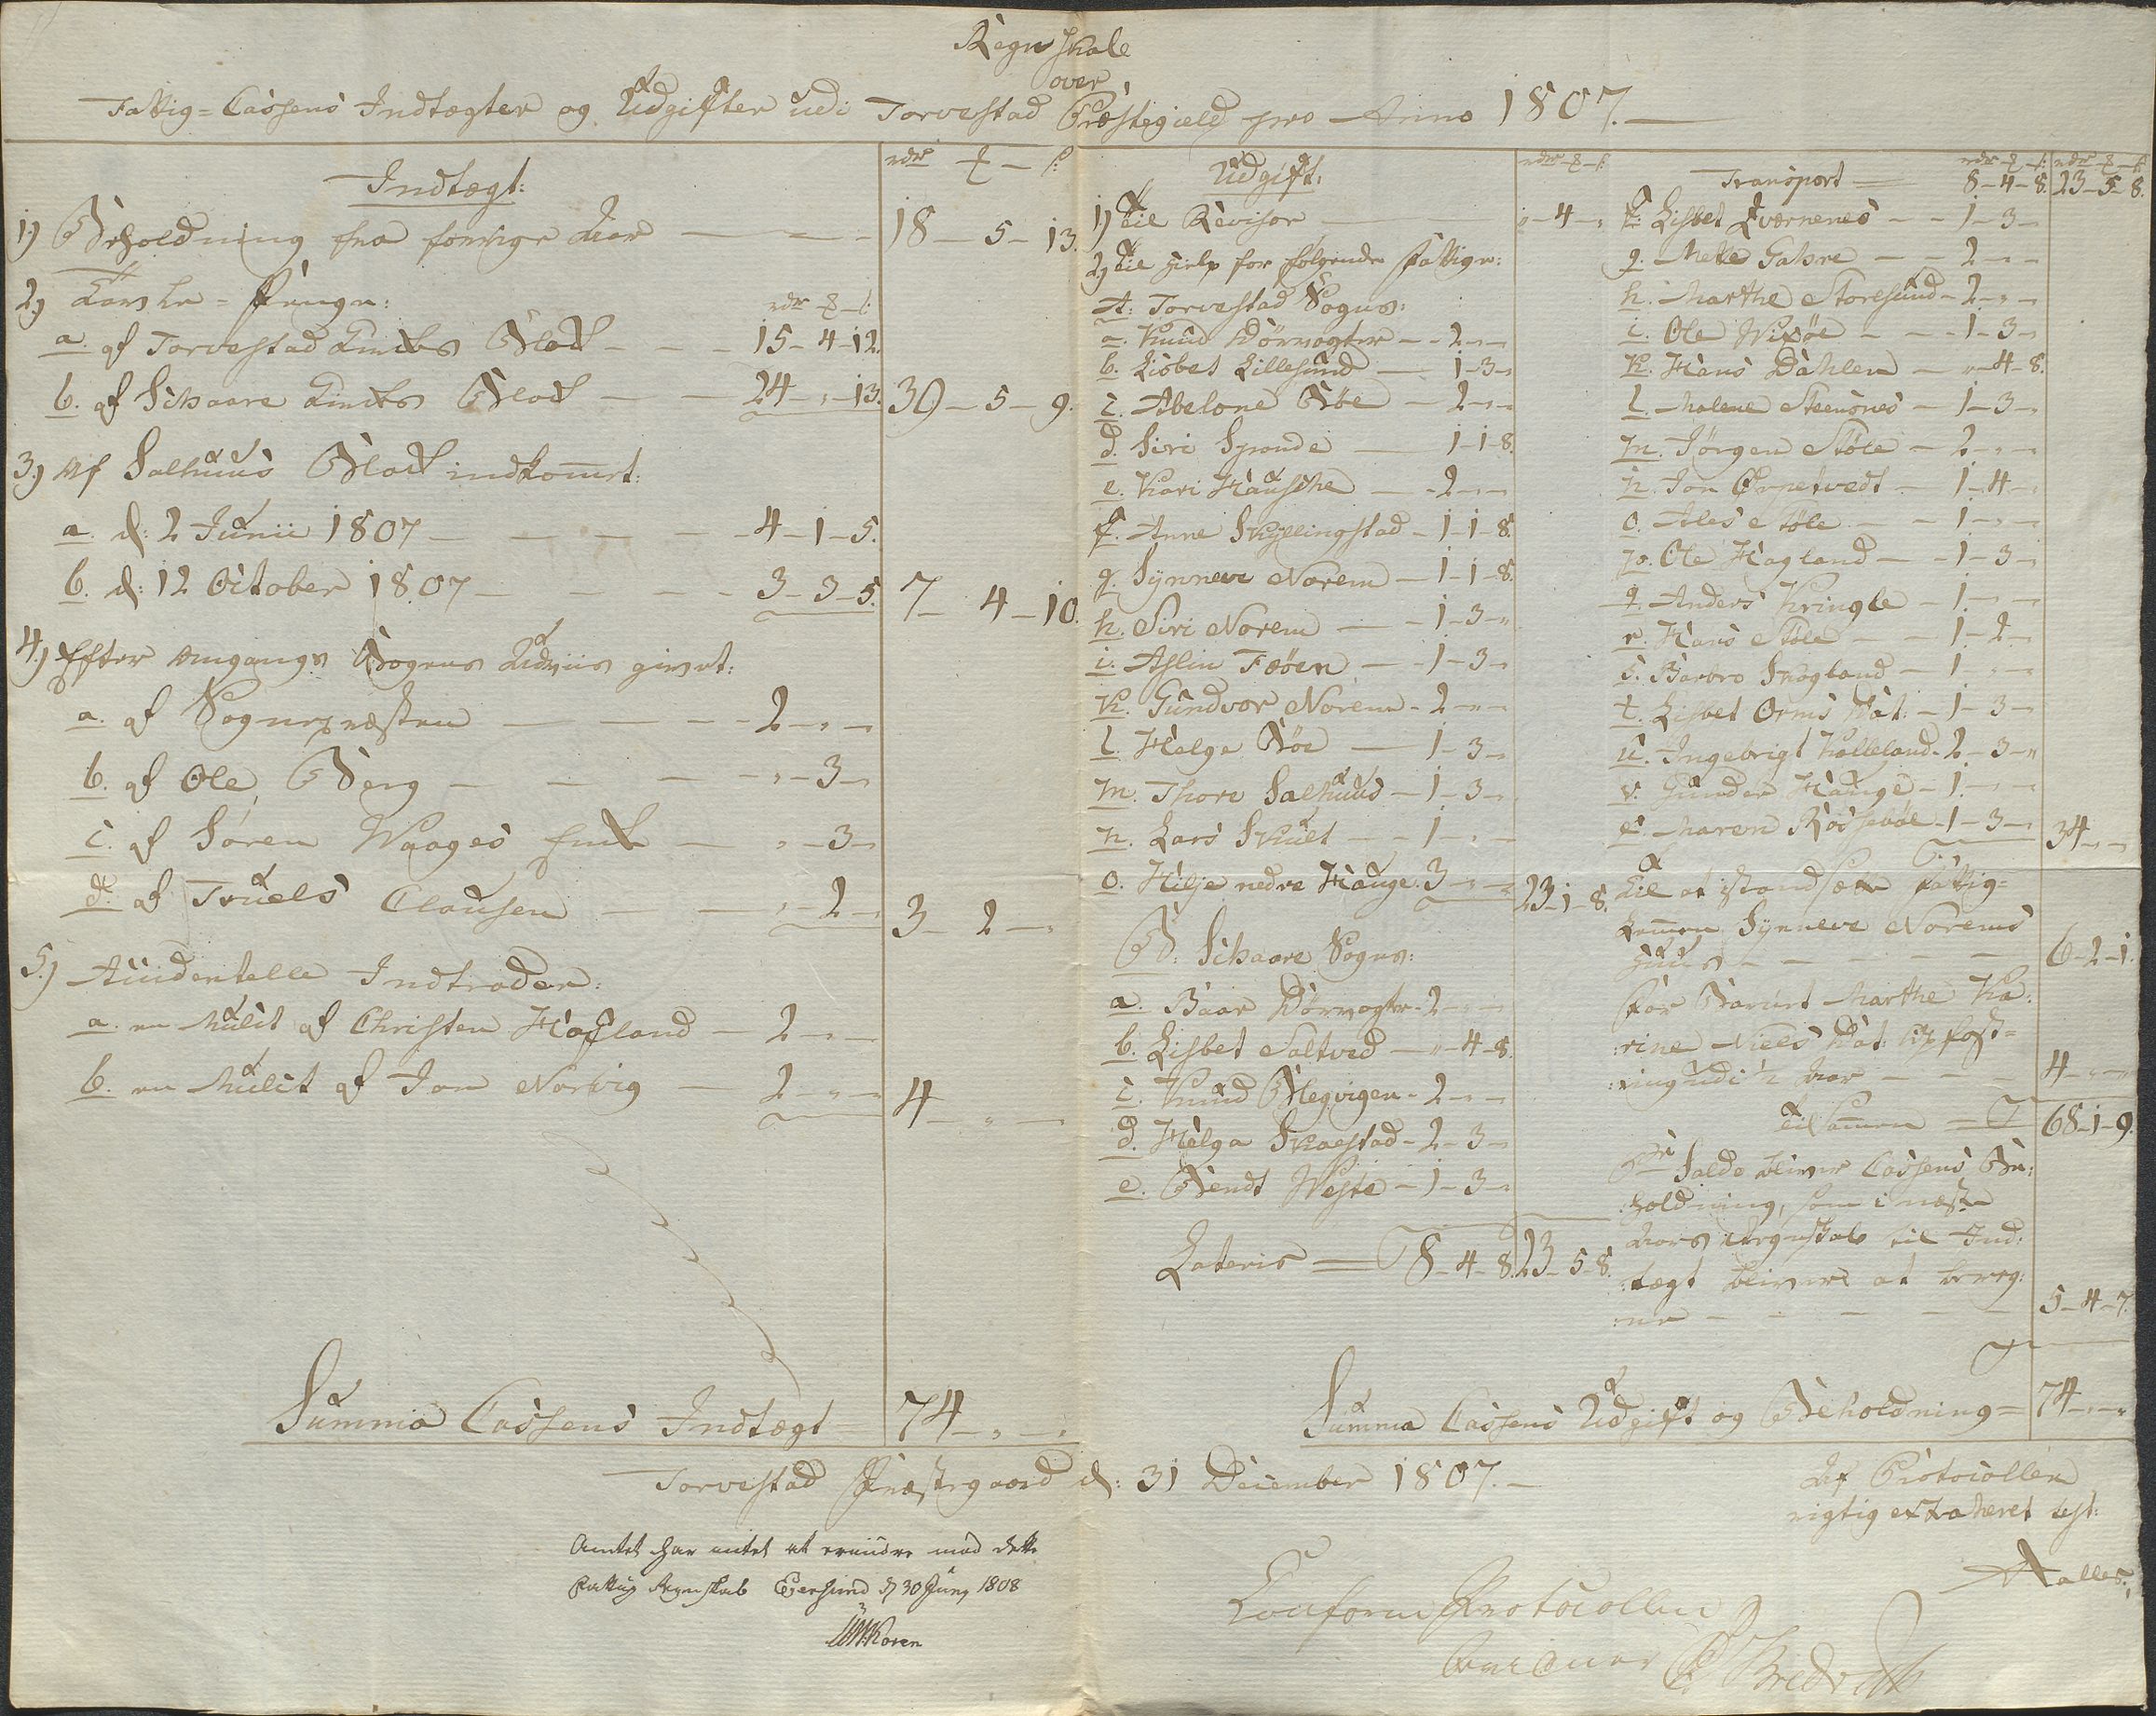 Regnskab
over
Fattig=Cassens Indtægter og Udgifter udi Torvestad Præstegield pro Anno 1807.
Indtægt:
rdr - ₰ - ß:
1) Beholdning fra forrige Aar 18 - 5 - 13.
2) Tavle=Penge: rdr ₰ ß
a. af Torvestad Kirkes Blok 15 - 4 - 12.
b. af Schaare Kirkes Blok 24 - " - 13. 39 - 5 - 9.
3.) Af Salhuus Blok indkommet:
a. d: 2 Junii 1807 4 - 1 - 5.
b. d: 12 October 1807 3 - 3 - 5. 7 - 4 - 10.
4.) Efter Omgangs Bogens Udviis givet:
a. af Sognepræsten 2 - " - "
b. af Ole Berg " - 3 - "
c. af Søren Waages Enke " - 3 - "
d. af Truels Clausen " - 2 - " 3 - 2 - "
5.) Accidentelle Indtræder:
a. en Mulct af Christen Hagland 2 - " - "
b. en Mulct af Jon Norvig 2 - " - " 4 - " - "
Summa Cassens Indtægt 74 - " - "
Udgift:
rdr - ₰ - ß:
1) til Revisor " - 4 - "
2) til Hielp for følgende Fattige:
A: Torvestad Sogn:
a. Knud Dörvogter 2 - " - "
b. Lisbet Lillesund 1 - 3 - "
c. Abelone Böe 2 - " - "
d. Siri Sponde 1 - 1 - 8.
e. Kari Hausche 2 - " - "
f. Anne Skyllingstad 1 - 1 - 8.
g. Synneve Norem 1 - 1 - 8.
h. Siri Norem 1 - 3 - "
i. Aslin Feöen 1 - 3 - "
k. Gundvor Norem 2 - " - "
l. Helge Böe 1 - 3 - "
m. Thore Salhuus 1 - 3 - "
n. Lars Skult 1 - " - "
o. Hilje nedre Hauge 3 - " - " 23 - 1 - 8.
B: Schaare Sogn:
a. Baar Dörvogter 2 - " - "
b. Lisbet Saltved " - 4 - 8.
c. Knud Blegvigen 2 - " - "
d. Helga Skaestad 2 - 3 - "
e. Bendt Weste 1 - 3 - "
Lateris = 8 - 4 - 8. 23 - 5 - 8.
rdr - ₰ - ß: rdr - ₰ - ß
Transport 8 - 4 - 8. 23 - 5 - 8.
f. Lisbet Qværnenes 1 - 3 - "
g. Mette Gahre 2 - " - "
h. Marthe Storesund 2 - " - "
i. Ole Wixöe 1 - 3 - "
k. Hans Dahlen " - 4 - 8.
l. Malene Steensnes 1 - 3 - "
m. Jörgen Stöle 2 - " - "
n. Jon Ørpetvedt 1 - 4 - "
o. Ales Stöle 1 - " - "
p. Ole Hagland 1 - 3 - "
q. Anders Kringle 1 - " - "
r. Hans Stöle 1 - 2 - "
s. Barbro Skogland 1 - " - "
t. Lisbet Orms Dat: 1 - 3 - "
u. Ingebrigt Kalleland 2 - 3 - "
v. Gunder Hauge 1 - " - "
x. Maren Rosseböe 1 - 3 - " 34 - " - "
til at istandsætte Fattig=
Lemmen Synneve Norems
Huus 6 - 2 - 1.
for Barnet Marthe Ka:
:rine Niels Dat: Opfost=
:ring udi ½ Aar 4 - " - "
tilsamen = 68 - 1 - 9.
pr Saldo bliver Cassens Be:
:holdning, som i næste
Aars Regnskab til Ind:
:tægt bliver at bereg:
:ne 5 - 4 - 7.
Summa Cassens Udgift og Beholdning = 74 - " - "
Torvestad Præstegaard d: 31 December 1807.
Af Protocollen
rigtig extraheret test:
Aalles.
Amtet har intet at erindre mod dette
Fattig Regnskab Egersund d 30 Juny 1808
UWKoren
Conform Protocollen